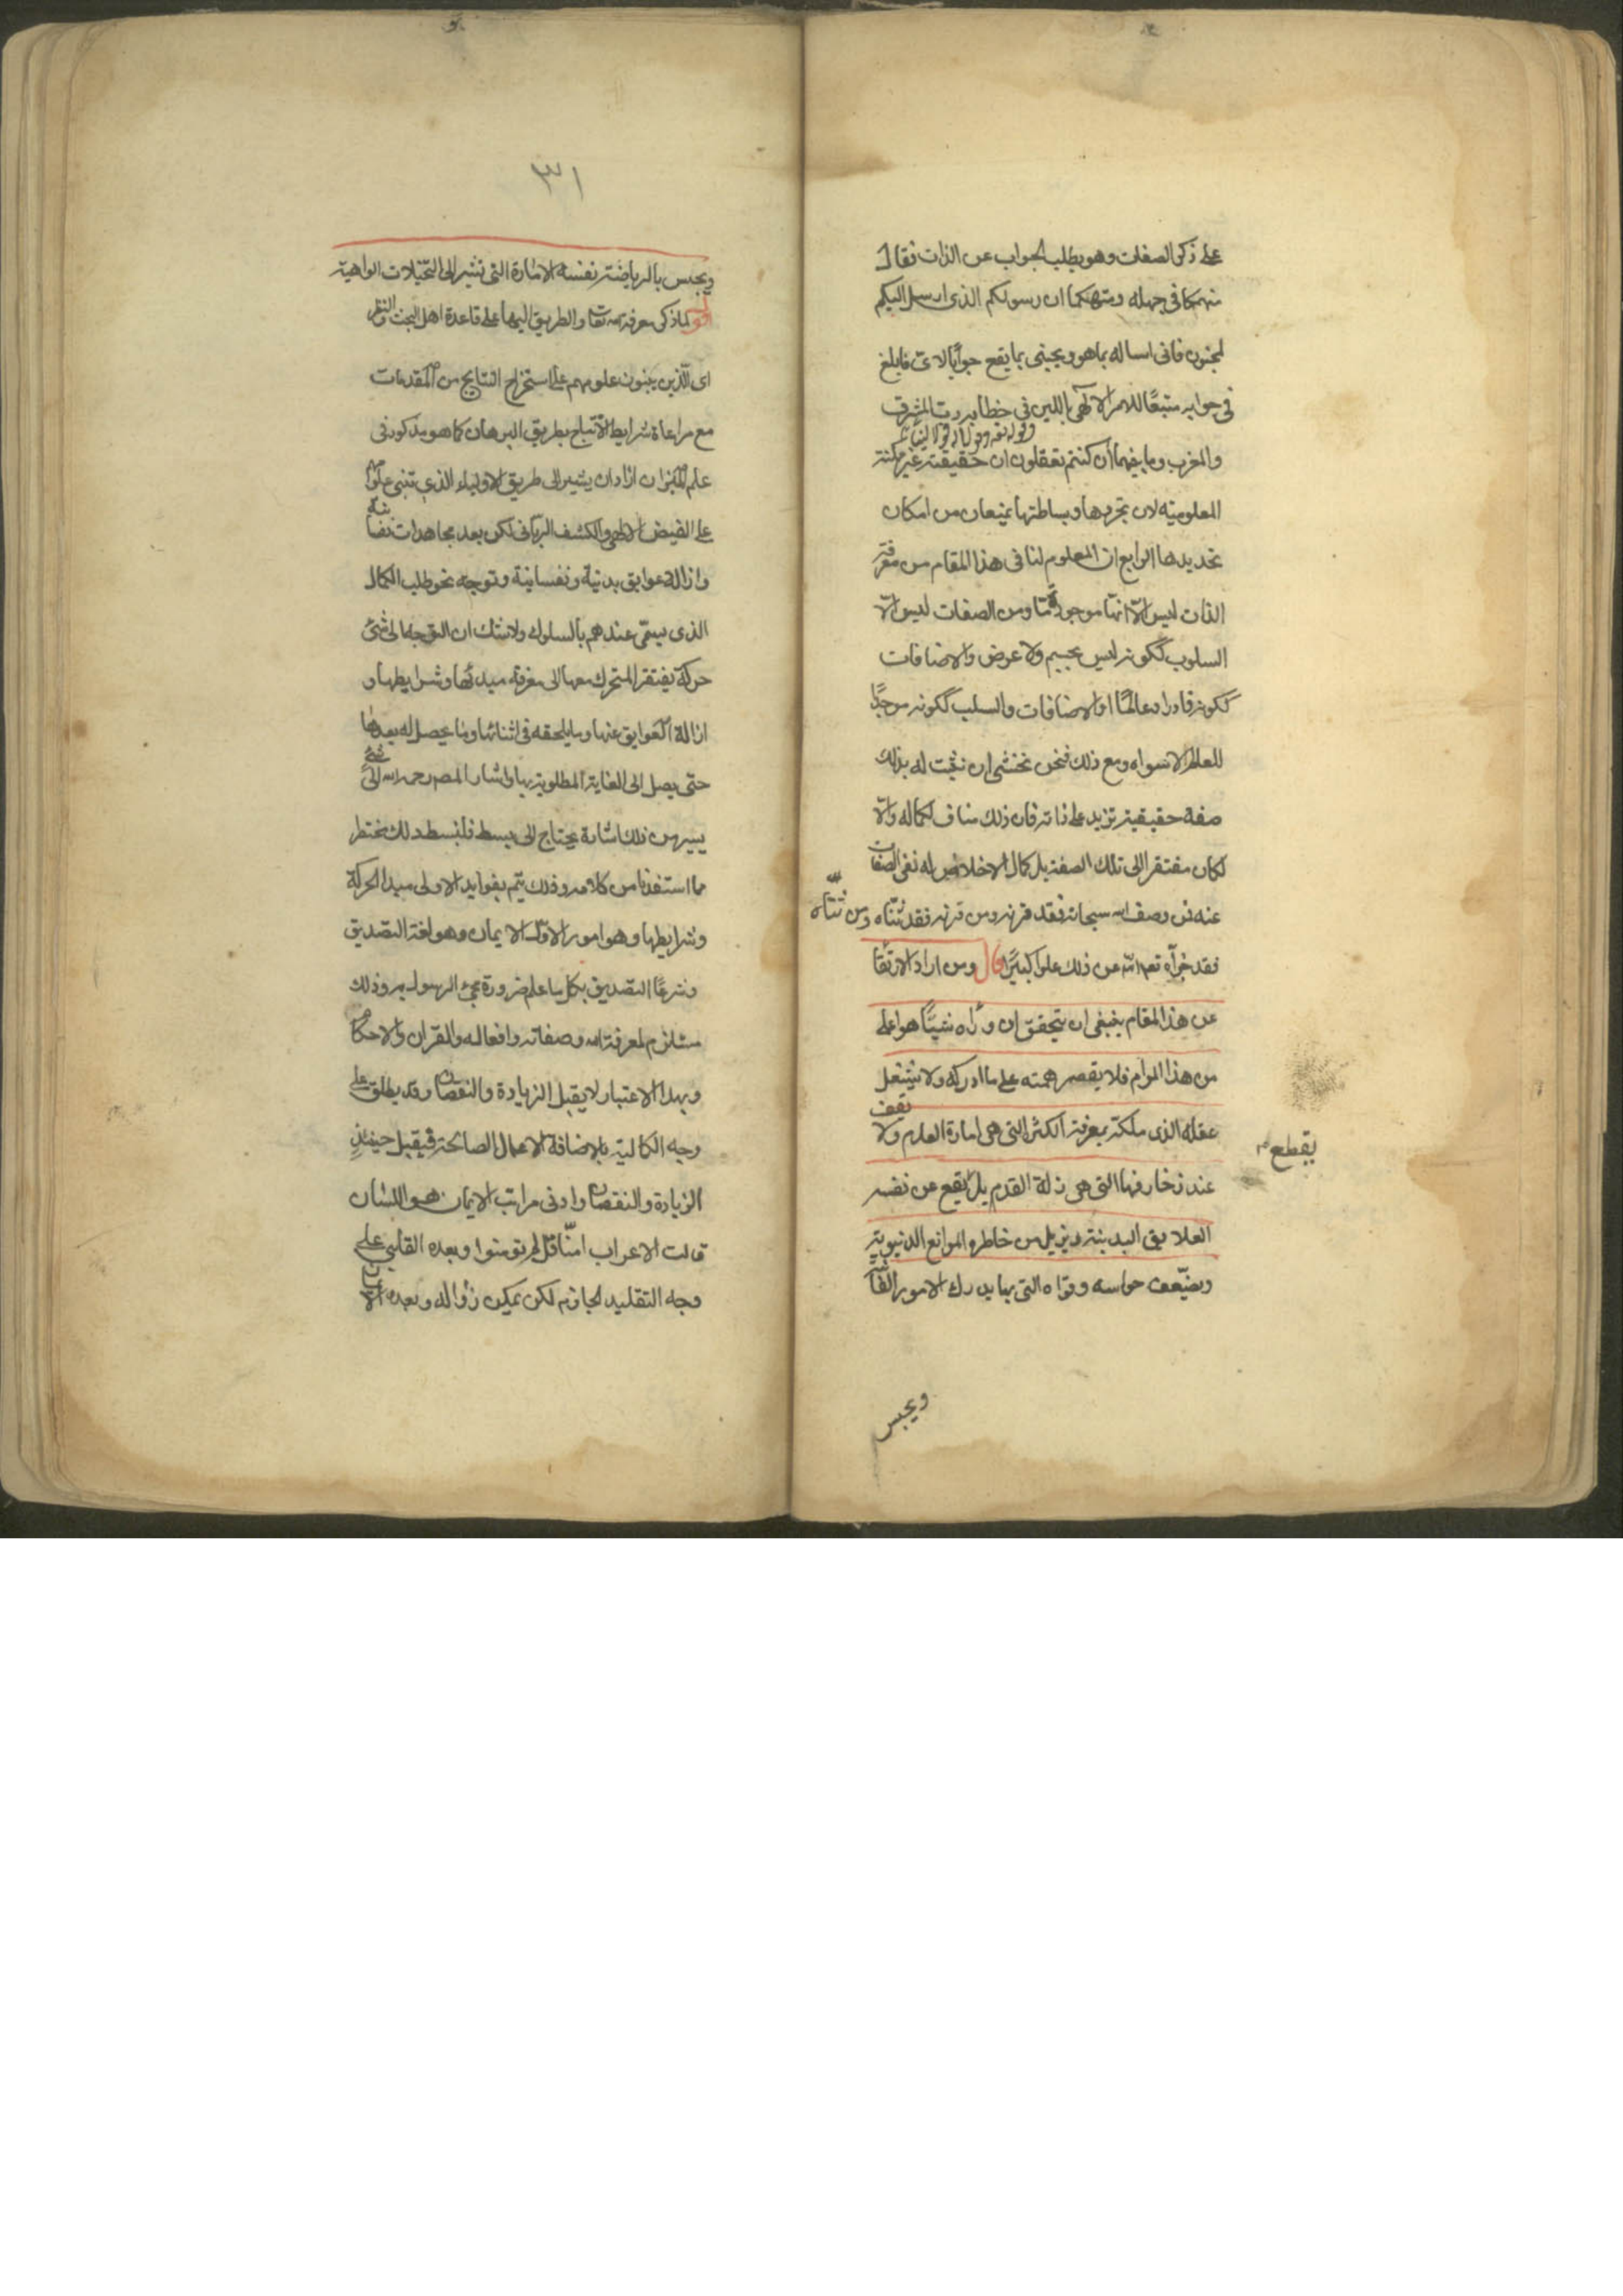 على ذكر الصفات وهو يطلب الجواب عن الذات فقال
منهمكا فى جهله ومتهكما ان رسولكم الذى ارسل اليكم
لمجنون فانى اساله بما هو ويجيبنى بما يقع جوابا لاى فابلغ
فى جوابه متبعًا للامر الالهى باللين فى خطابه رب المشرق
وقوله تعالى وقولا له قولا لينا
والمغرب وما بينهما ان كنتم تعقلون ان حقيقته غير ممكنة
المعلومية لان تجردها وبساطتها يمنعان من امكان
تحديدها الرابع ان المعلوم لنا فى هذا المقام من معرفة
الذات ليس الا انها موجودة ومن الصفات ليس الّا
السلوب ككونه ليس بجسم ولا عرض والاضافات
ككونه قادرا وعالمًا او الاضافات والسلب ككونه موجدًا
للعالم لا سواه ومع ذلك فنحن نخشى ان نثبت له بذلك
صفة حقيقية تزيد على ذاته فان ذلك مناف لكماله والّا
لكان مفتقرا الى تلك الصفة بل كمال الاخلاص له نفى الصفات
عنه فمن وصف الله سبحانه فقد قرنه ومن قرنه فقد ثنّاه ومن ثنّاه
فقد جزّأه تعالى الله عن ذلك علوا كبيرًا قال ومن اراد الارتقا
عن هذا المقام ينبغى ان يتحقق ان وراه شيئًا هو اعلى
من هذا المرام فلا يقصر همته على ما ادركه ولا يشغل
عقله الذى ملكه بمعرفة الكثرة التى هى امارة العدم ولا يقف
عند زخارفها التى هى زلة القدم بل يقطع عن نفسه
يقطع
العلايق البدنية ويزيل من خاطره الموانع الدنيوية
ويضعّف حواسه وقواه التى بها يدرك الامور الفانية
ويحبس
٣١
ويحبس بالرياضة نفسه الامارة التى تشير الى التخيلات الواهية
اقول لما ذكر معرفة الله تعالى والطريق اليها على قاعدة اهل البحث والنظر
اى الّذين يبنون علومهم على استخراج النتايج من المقدمات
مع مراعاة شرايط الانتاج بطريق البرهان كما هو مذكور فى
علم الميزان اراد ان يشير الى طريق الاولياء الذى تبنى علومهم
على الفيض الالهى والكشف الربّانى لكن بعد مجاهدات نفسانية
وازالة عوايق بدنية ونفسانية وتوجه نحو طلب الكمال
الذى يسمّى عندهم بالسلوك ولا شك ان التوجه الى شئ
حركة يفتقر المتحرك معها الى معرفة مبدئها وشرايطها و
ازالة العوايق عنها وما يلحقه فى اثنائها وما يحصل له بعدها
حتى يصل الى الغاية المطلوبة بها واشار المصـ رحمه الله الى شئ
يسير من ذلك اشارة يحتاج الى بسط فلنبسط ذلك مختصر
مما استفدنا من كلامه وذلك يتم بفوايد الاولى مبدا الحركة
وشرايطها وهو امور الاوّل الايمان وهو لغة التصديق
وشرعًا التصديق بكل ما علم ضرورة مجئ الرسول به وذلك
مستلزم لمعرفة الله وصفاته وافعاله والقران والاحكام
وبهذا الاعتبار لا يقبل الزيادة والنقصان وقد يطلق على
وجه الكمالية بالاضافة الاعمال الصالحة فيقبل حينئذٍ
الزيادة والنقصان وادنى مراتب الايمان هو اللسان
قالت الاعراب امنّا قل لم تومنوا وبعده القلبى على
وجه التقليد الجازم لكن يمكن زواله وبعده الايمان